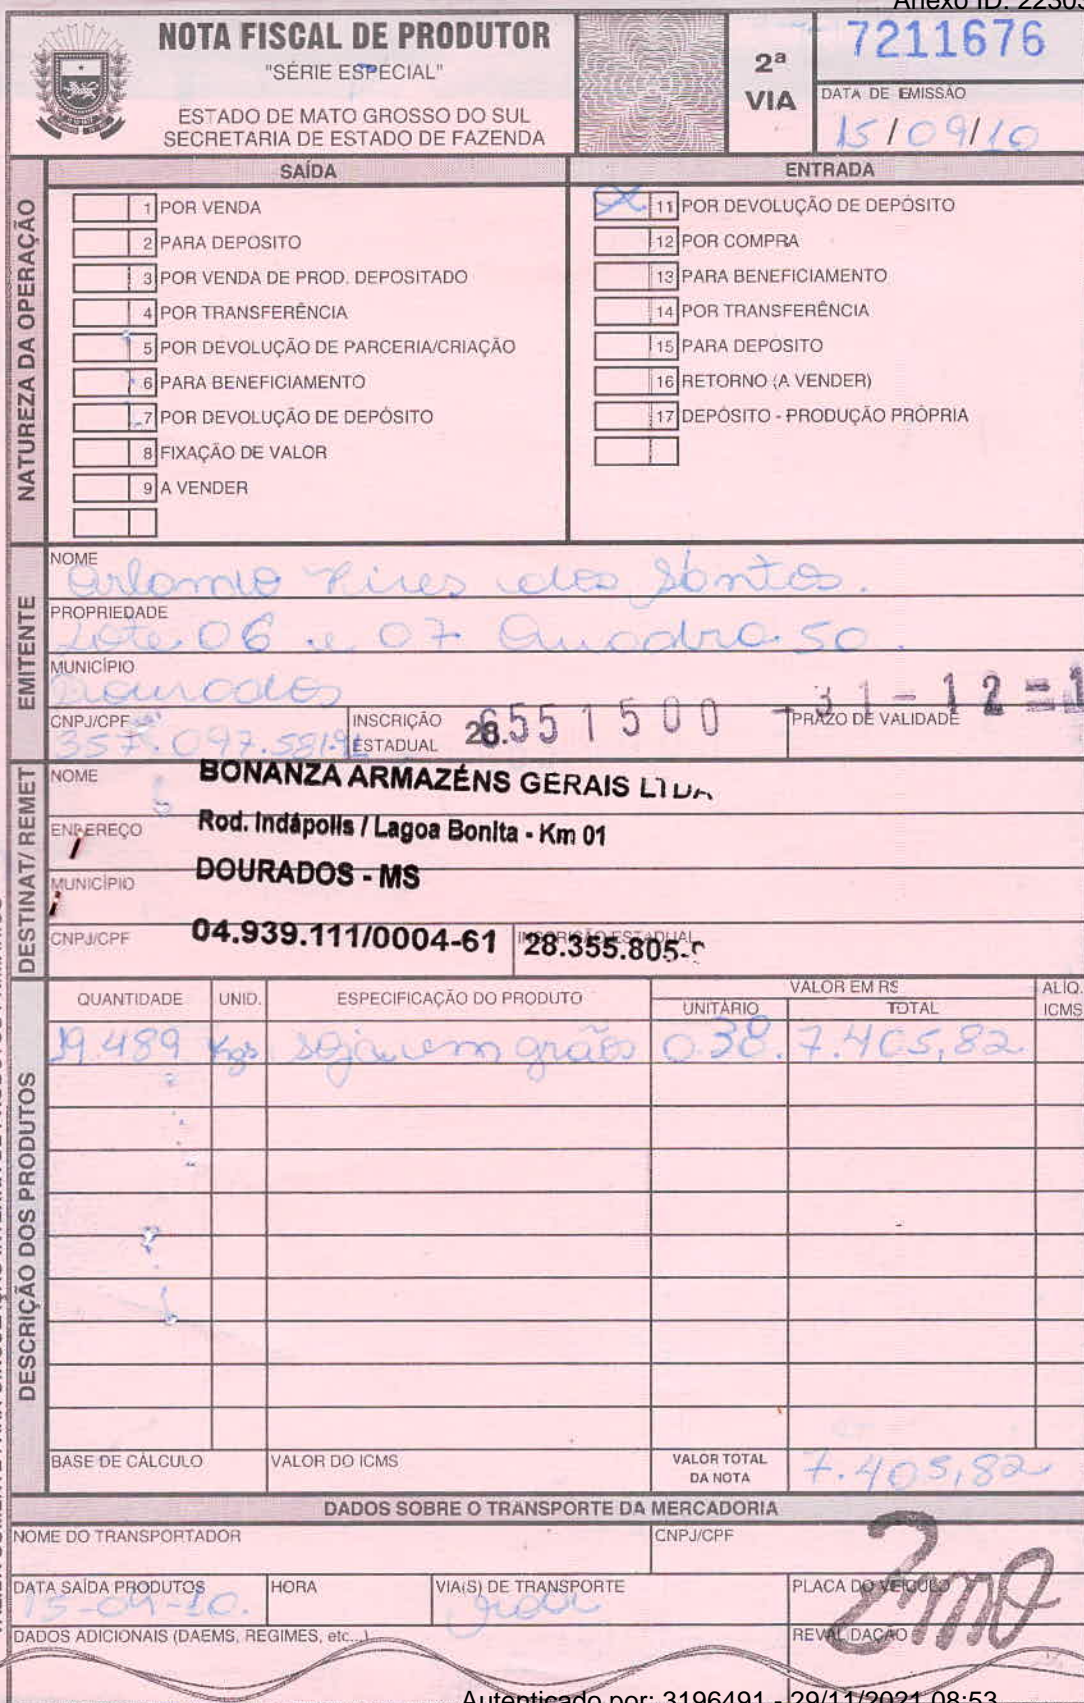 Anexo ID: 22303
NOTA FISCAL DE PRODUTOR
"SÉRIE ESPECIAL"
ESTADO DE MATO GROSSO DO SUL
SECRETARIA DE ESTADO DE FAZENDA
2ª
VIA
7211676
DATA DE EMISSÃO
15/09/10
NATUREZA DA OPERAÇÃO
SAÍDA
1 POR VENDA
2 PARA DEPOSITO
3 POR VENDA DE PROD. DEPOSITADO
4 POR TRANSFERÊNCIA
5 POR DEVOLUÇÃO DE PARCERIA/CRIAÇÃO
6 PARA BENEFICIAMENTO
7 POR DEVOLUÇÃO DE DEPÓSITO
8 FIXAÇÃO DE VALOR
9 A VENDER
ENTRADA
X 11 POR DEVOLUÇÃO DE DEPÓSITO
12 POR COMPRA
13 PARA BENEFICIAMENTO
14 POR TRANSFERÊNCIA
15 PARA DEPOSITO
16 RETORNO (A VENDER)
17 DEPÓSITO - PRODUÇÃO PRÓPRIA
EMITENTE
NOME
Orlando Pires dos Santos.
PROPRIEDADE
Lote 06 e 07 Quadra 50.
MUNICÍPIO
Dourados
CNPJ/CPF
357.097.581.91
INSCRIÇÃO ESTADUAL
28.6551500
PRAZO DE VALIDADE
31-12=1
DESTINAT/ REMET
NOME
BONANZA ARMAZÉNS GERAIS LTDA
ENDEREÇO
Rod. Indápolis / Lagoa Bonita - Km 01
MUNICÍPIO
DOURADOS - MS
CNPJ/CPF
04.939.111/0004-61
INSCRIÇÃO ESTADUAL
28.355.805-
DESCRIÇÃO DOS PRODUTOS
QUANTIDADE UNID. ESPECIFICAÇÃO DO PRODUTO VALOR EM R$ ALÍQ. ICMS
UNITÁRIO TOTAL
19.489 Kgs soja em grãos 0.38. 7.405,82
BASE DE CÁLCULO
VALOR DO ICMS
VALOR TOTAL DA NOTA
7.405,82
DADOS SOBRE O TRANSPORTE DA MERCADORIA
NOME DO TRANSPORTADOR
CNPJ/CPF
DATA SAÍDA PRODUTOS
15-09-10.
HORA
VIA(S) DE TRANSPORTE
PLACA DO VEICULO
DADOS ADICIONAIS (DAEMS, REGIMES, etc...)
REVALIDAÇÃO
Autenticado por: 3196491 - 29/11/2021 08:53